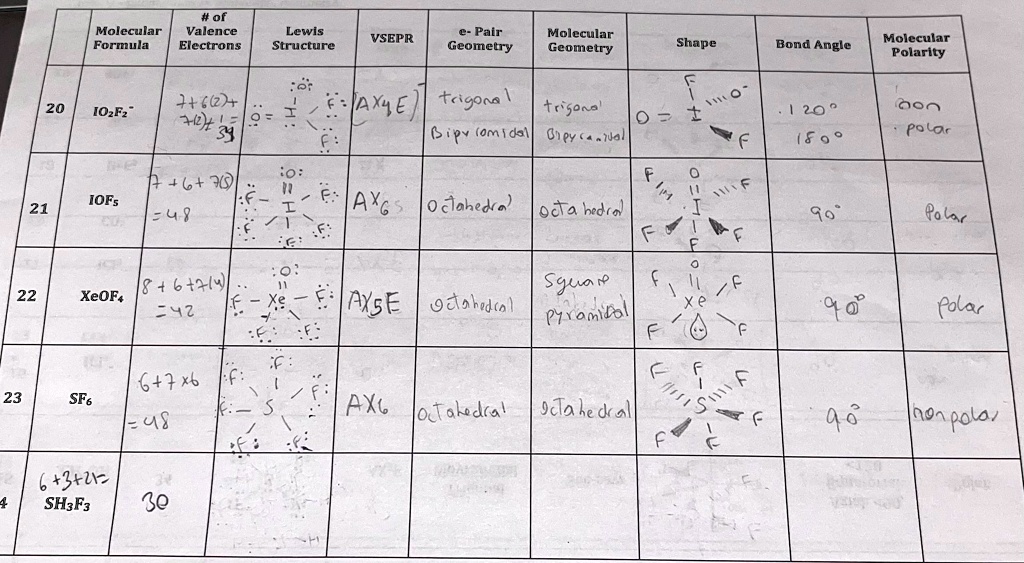 Molecular Formula
# of Valence Electrons
Lewis Structure
VSEPR
e- Pair Geometry
Molecular Geometry
Shape
Bond Angle
Molecular Polarity
20
IO₂F₂⁻
7+6(2)+
7(2)+1=
34
:O:
O = I
F:
F:
[AX4E]⁻
trigonal
Bipyramidal
trigonal
Bipyramidal
F
O = I
O⁻
F
120°
180°
non
polar
21
IOF₅
7+6+7(5)
=48
:O:
:F - I - F:
:F
:F:
:F:
AX6
Octahedral
octahedral
F O F
I
F F F
90°
Polar
22
XeOF₄
8+6+7(4)
=42
:O:
:F - Xe - F:
:F: :F:
AX5E
octahedral
Square
pyramidal
O
F F
Xe
F F
90°
polar
23
SF₆
6+7x6
=48
:F:
:F: F:
F: - S
:F: :F:
AX6
octahedral
octahedral
F F F
S
F
F F
90°
nonpolar
4
6+3+21=
SH₃F₃
30